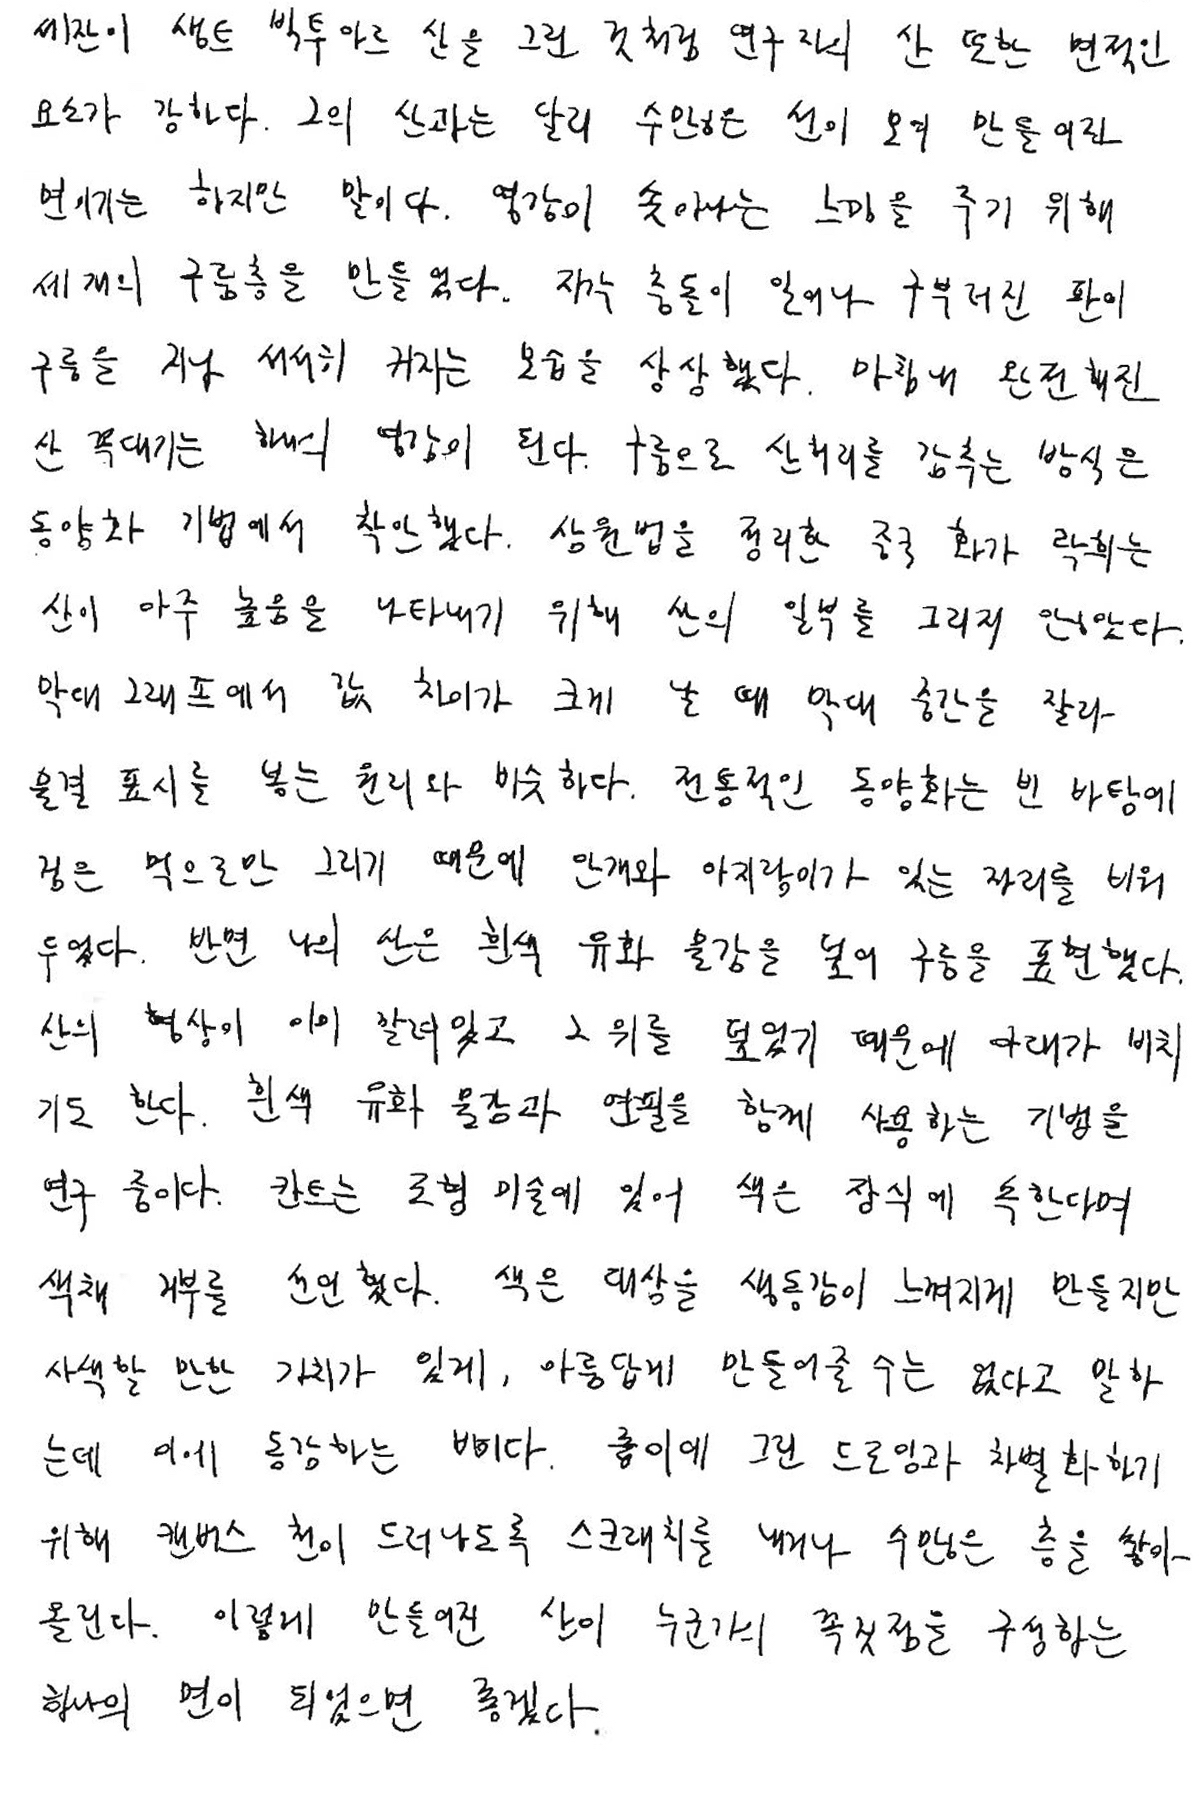 세잔이 생트 빅투아르 산을 그린 것처럼 연구자의 산 또한 면적인
요소가 강하다. 그의 산과는 달리 수많은 선이 모여 만들어진
면이기는 하지만 말이다. 영감이 솟아나는 느낌을 주기 위해
세 개의 구름층을 만들었다. 지각 충돌이 일어나 구부러진 판이
구름을 지남 서서히 커지는 모습을 상상했다. 마침내 완전해진
산 꼭대기는 하나의 영감이 된다. 구름으로 산허리를 감추는 방식은
동양화 기법에서 착안했다. 삼원법을 정리한 중국 화가 곽희는
산이 아주 높음을 나타내기 위해 산의 일부를 그리지 않았다.
막대 그래프에서 값 차이가 크게 날 때 막대 중간을 잘라
물결 표시를 넣는 원리와 비슷하다. 전통적인 동양화는 빈 바탕에
검은 먹으로만 그리기 때문에 안개와 아지랑이가 있는 자리를 비워
두었다. 반면 나의 산은 흰색 유화 물감을 덮어 구름을 표현했다.
산의 형상이 이미 잘려있고 그 위를 덮었기 때문에 아래가 비치
기도 한다. 흰색 유화 물감과 연필을 함께 사용하는 기법을
연구 중이다. 칸트는 조형 미술에 있어 색은 장식에 속한다며
색채 거부를 선언했다. 색은 대상을 생동감이 느껴지게 만들지만
사색할 만한 가치가 있게, 아름답게 만들어줄 수는 없다고 말하
는데 이에 동감하는 바이다. 종이에 그린 드로잉과 차별화하기
위해 캔버스 천이 드러나도록 스크래치를 내거나 수많은 층을 쌓아
올린다. 이렇게 만들어진 산이 누군가의 꼭짓점을 구성하는
하나의 면이 되었으면 좋겠다.